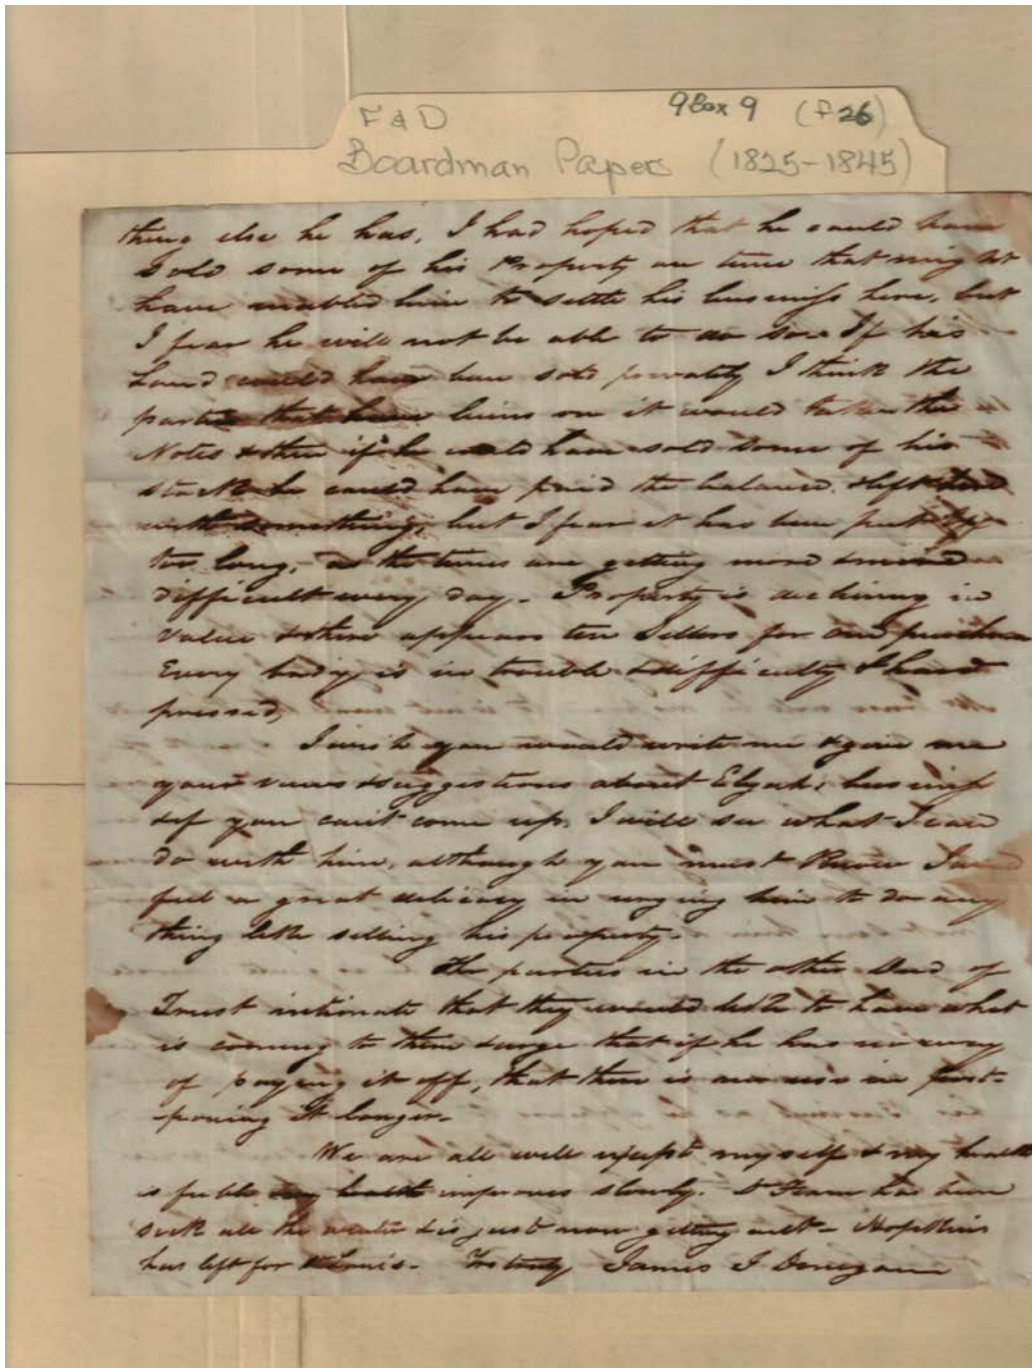 F & D 9Box 9 (f 26)
Boardman Papers (1825-1845)
thing else he has, I had hoped that he could have
sold some of his Property on time that might
have enabled him to settle his business here, but
I fear he will not be able to do so. If his
Land could have been sold privately I think the
parties that have liens on it would take the
Notes & then if he could have sold some of his
stock he could have paid the balance & left
with something, but I fear it has been put off
too long, as the times are getting more & more
difficult every day - Property is declining in
value & there appears ten Sellers for one purchaser
Every body is in trouble & difficulty & hard
pressed,
I wish you would write me & give me
your views & suggestions about Elijah's business
& if you can't come up, I will see what I can
do with him, although you must know I
feel a great delicacy in urging him to do any
thing like selling his property -
The parties in the other Deed of
Trust intimate that they would like to have what
is coming to them & urge that if he has no way
of paying it off, that there is no use in post-
-poning it longer -
We are all well except myself & my health
is feeble my health improves slowly. has been
sick all the winter & is just now getting out - Hopkins
has left for St Louis - Yrs truly James J Donegan